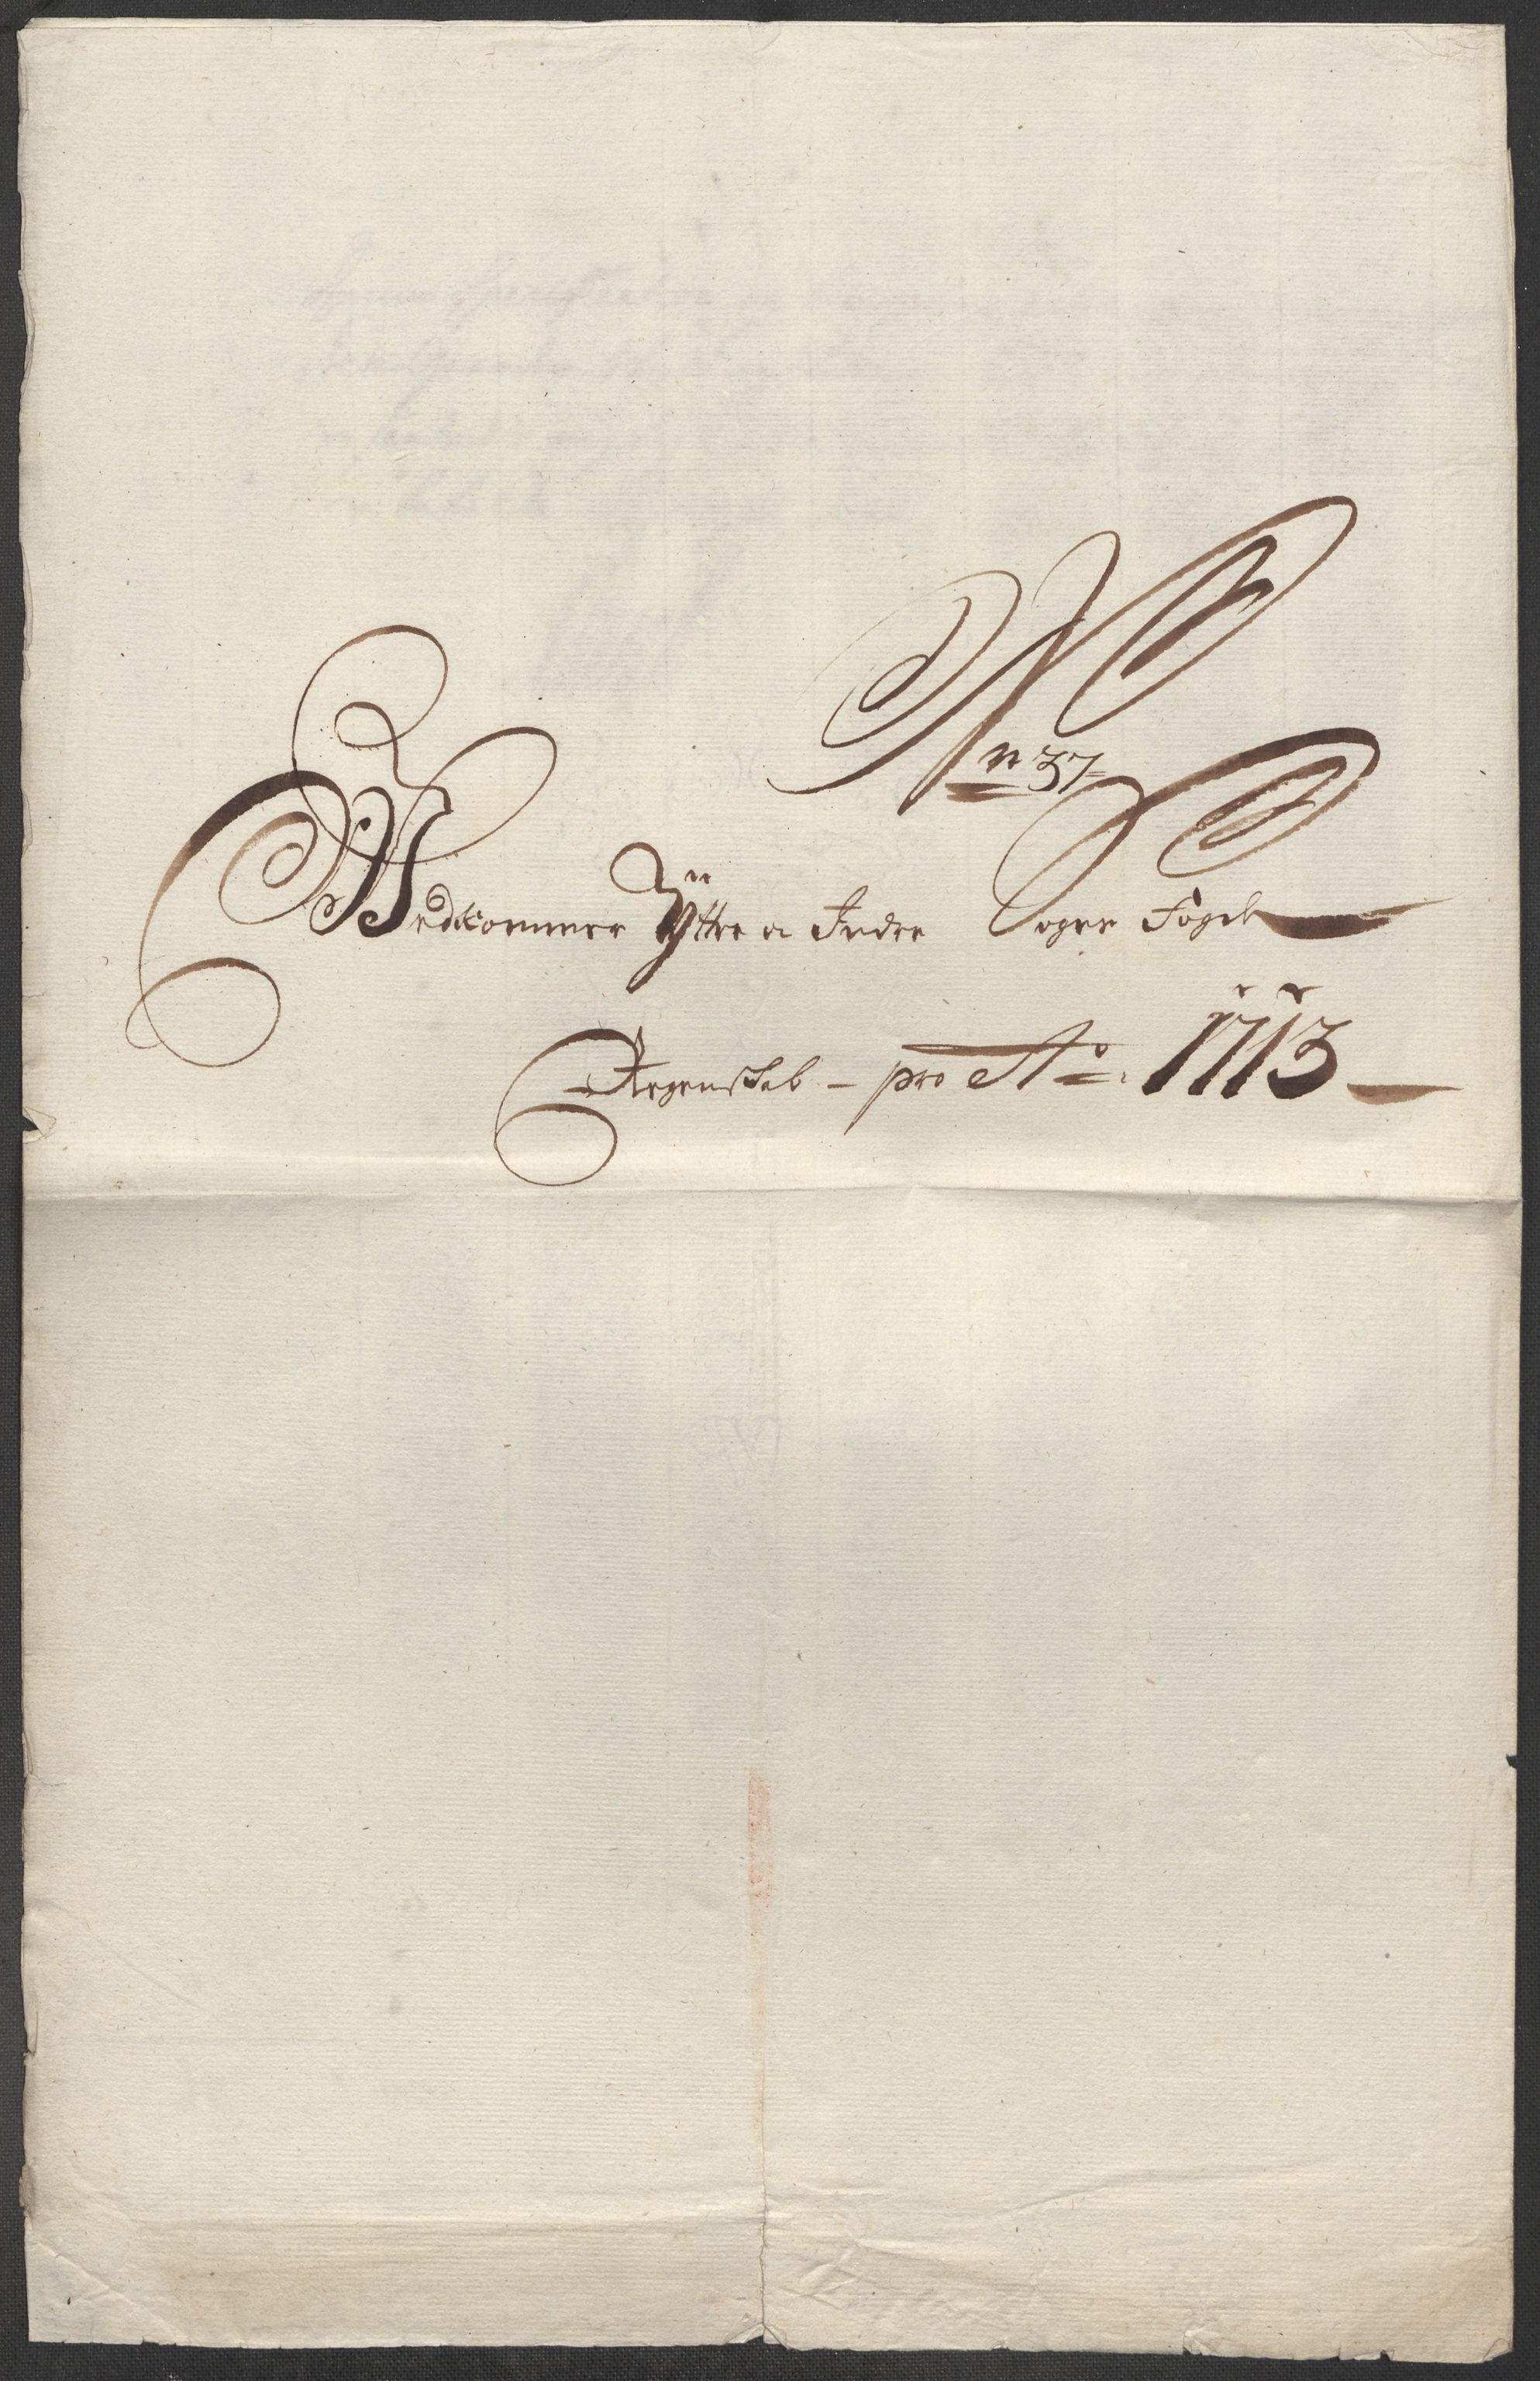 No 37
Vedkommer Ÿttre og Indre Sogns Fogd
Regenskab – pro Ao. 1713